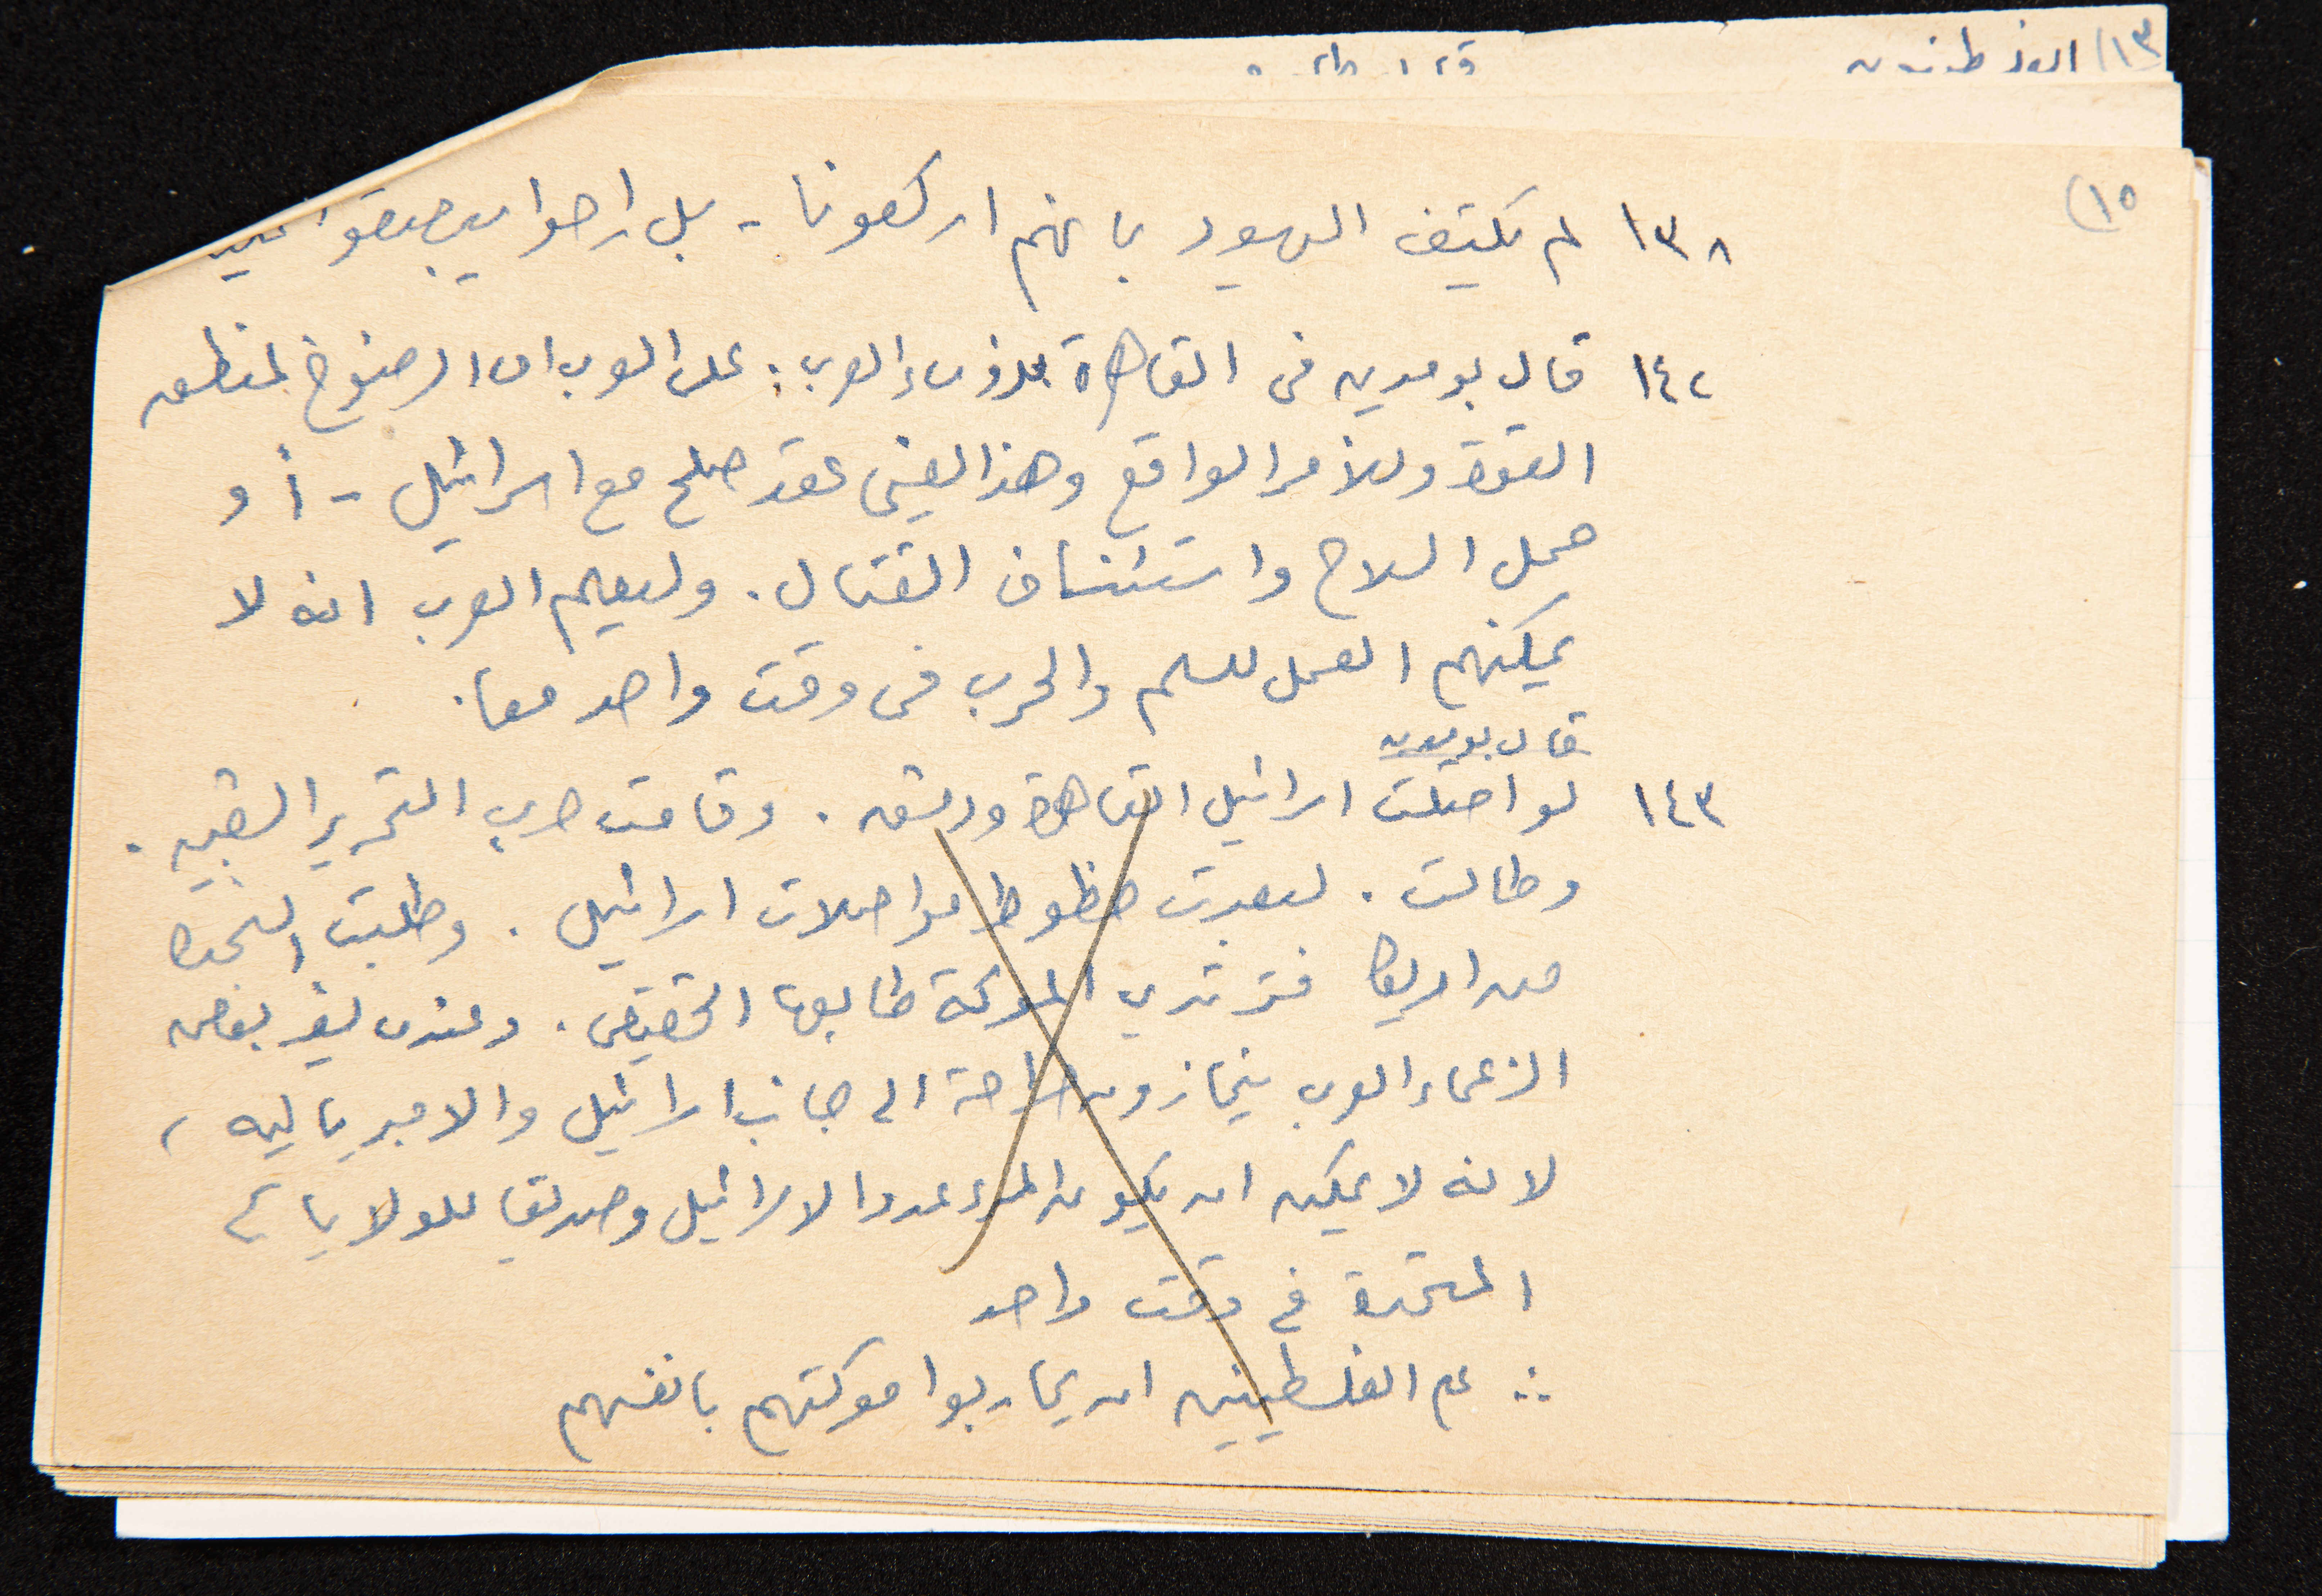 ١٣)
١٥)
١٣٨ لم يكتف اليهود بانهم اركعونا - بل راحوا يبصقون
١٤٢ قال بومدين فى القاهرة للرؤساء العرب : على العرب اما الرضوخ لمنطق
القوة وللأمر الواقع وهذا يعنى عقد صلح مع اسرائيل - أو
حمل السلاح واستئناف القتال . وليعلم العرب انه لا
يمكنهم العمل للسلم والحرب فى وقت واحد معا .
قال بومدين
١٤٣ لو احتلت اسرائيل القاهرة ودمشق . وقامت حرب التحرير الشعبيه .
وطالت . لبعدت خطوط مواصلات اسرائيل . وطلبت النجدة
من امريكا فترتدي المعركة طابعها الحقيقى . وعندئذ بعض
الزعماء العرب ينحازون صراحة الى جانب اسرائيل والامبرياليه ،
لانه لا يمكن ان يكون المرء عدوا لاسرائيل وصديقا للولايات
المتحدة فى وقت واحد
∴ على الفلسطينيين ان يحاربوا معركتهم بانفسهم